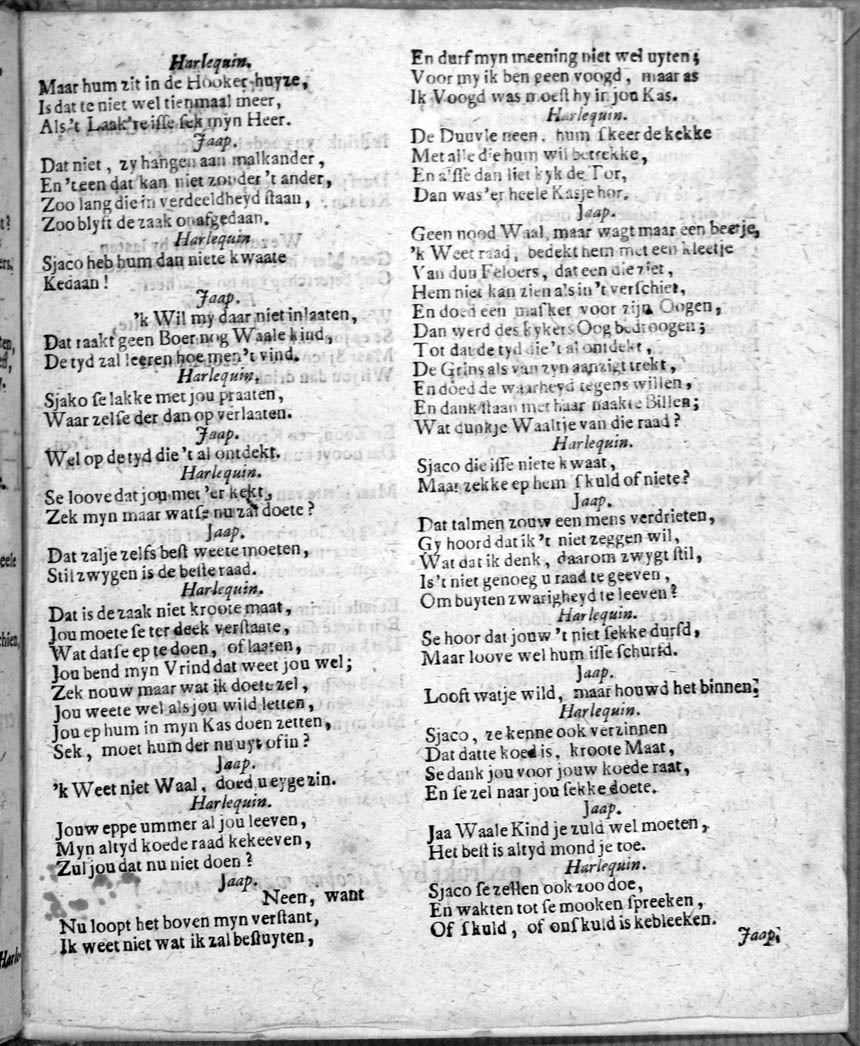 Harlequin.
Maar hum zit in de Hooker-huyze,
Is dat te niet wel tienmaal meer,
Als 't Laak're isse sek myn Heer.
Jaap.
Dat niet, zy hangen aan malkander,
En 't een dat kan niet zonder 't ander,
Zoo lang die in verdeeldheyd staan,
Zoo blyft de zaak onafgedaan.
Harlequin
Sjaco heb hum dan niete kwaate
Kedaan!
Jaap.
'k Wil my daar niet inlaaten,
Dat raakt geen Boer nog Waale kind,
De tyd zal leeren hoe men 't vind.
Harlequin.
Sjako se lakke met jou praaten,
Waar zelse der dan op verlaaten.
Jaap.
Wel op de tyd die 't al ontdekt.
Harlequin.
Se loove dat jou met 'er kekt,
Zek myn maar watse nu zal doete?
Jaap.
Dat zalje zelfs best weete moeten,
Stil zwygen is de beste raad.
Harlequin.
Dat is de zaak niet kroote maat,
Jou moete se ter deek verstaate,
Wat datse ep te doen, of laaten,
Jou bend myn Vrind dat weet jou wel;
Zek nouw maar wat ik doete zel,
Jou weete wel als jou wild letten,
Jou ep hum in myn Kas doen zetten,
Sek, moet hum der nu uyt of in?
Jaap.
'k Weet niet Waal, doed u eyge zin.
Harlequin.
Jouw eppe ummer al jou leeven,
Myn altyd koede raad kekeeven,
Zul jou dat nu niet doen?
Jaap.
Neen, want
Nu loopt het boven myn verstant,
Ik weet niet wat ik zal besluyten,
En durf myn meening niet wel uyten;
Voor my ik ben geen voogd, maar as
Ik Voogd was moest hy in jou Kas.
Harlequin.
De Duuvle neen, hum skeer de kekke
Met alle die hum wil betrekke,
En a'sse dan liet kyk de Tor,
Dan was 'er heele Kasje hor.
Jaap.
Geen nood Waal, maar wagt maar een beetje,
'k Weet raad, bedekt hem met een kleetje
Van dun Feloers, dat een die ziet,
Hem niet kan zien als in 't verschiet,
En doed een masker voor zijn Oogen,
Dan werd des kykers Oog bedroogen;
Tot dat de tyd die 't al ontdekt,
De Grins als van zyn aanzigt trekt,
En doed de waarheyd tegens willen,
En dank staan met haar naakte Billen;
Wat dunkje Waaltje van die raad?
Harlequin.
Sjaco die isse niete kwaat,
Maar zekke ep hem skuld of niete?
Jaap.
Dat talmen zouw een mens verdrieten,
Gy hoord dat ik 't niet zeggen wil,
Wat dat ik denk, daarom zwygt stil,
Is 't niet genoeg u raad te geeven,
Om buyten zwarigheyd te leeven?
Harlequin.
Se hoor dat jouw 't niet sekke dursd,
Maar loove wel hum isse schursd.
Jaap.
Looft watje wild, maar houwd het binnen;
Harlequin.
Sjaco, ze kenne ook verzinnen
Dat datte koed is, kroote Maat,
Se dank jou voor jouw koede raat,
En se zel naar jou sekke doete.
Jaap.
Jaa Waale Kind je zuld wel moeten,
Het best is altyd mond je toe.
Harlequin.
Sjaco se zellen ook zoo doe,
En wakten tot se mooken spreeken,
Of skuld, of onskuld is kebleeken.
Jaap;